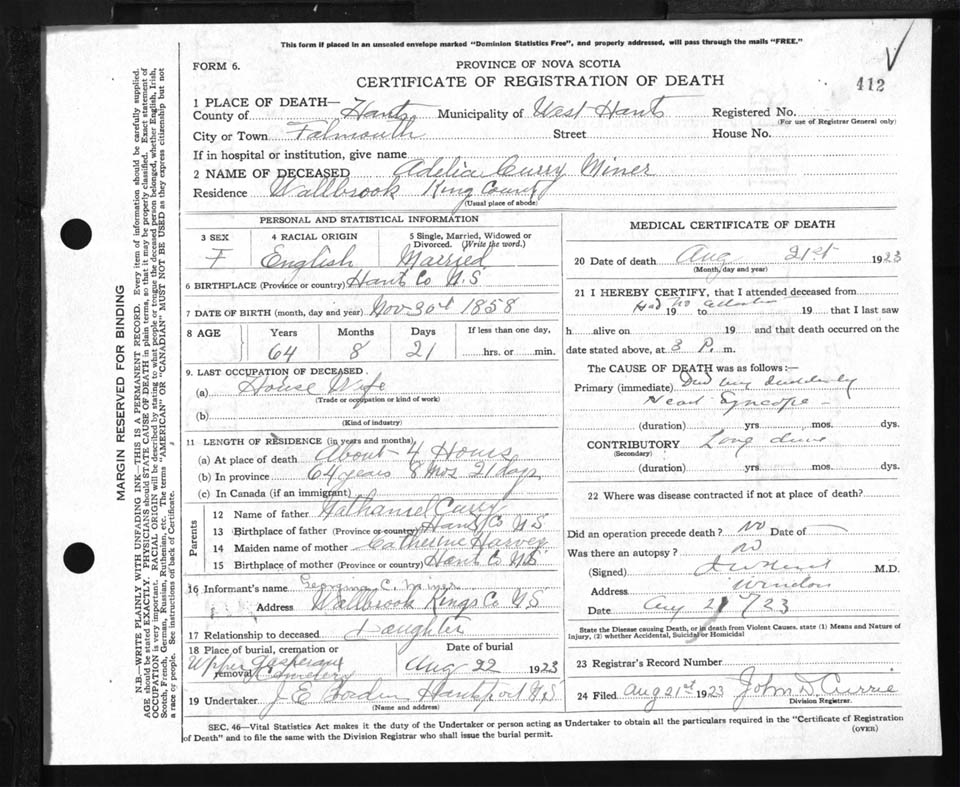 This form if placed in an unsealed envelope marked "Dominion Statistics Free", and properly addressed, will pass through the mails "FREE."
FORM 6.
PROVINCE OF NOVA SCOTIA
CERTIFICATE OF REGISTRATION OF DEATH
412
1 PLACE OF DEATH—
County of Hants Municipality of West Hants Registered No.
(For use of Registrar General only)
City or Town Falmouth Street House No.
If in hospital or institution, give name
2 NAME OF DECEASED Adelia Curry Miner
Residence Wallbrook King County
(Usual place of abode)
PERSONAL AND STATISTICAL INFORMATION
3 SEX 4 RACIAL ORIGIN 5 Single, Married, Widowed or Divorced. (Write the word.)
F English Married
6 BIRTHPLACE (Province or country) Hants Co N.S
7 DATE OF BIRTH (month, day and year) Nov 30th 1858
8 AGE Years Months Days If less than one day,
64 8 21 hrs. or min.
9. LAST OCCUPATION OF DECEASED.
(a) House Wife
(Trade or occupation or kind of work)
(b)
(Kind of industry)
11 LENGTH OF RESIDENCE (in years and months)
(a) At place of death About 4 Hours
(b) In province 64 years 8 mos 21 days
(c) In Canada (if an immigrant)
Parents
12 Name of father Nathaniel Curry
13 Birthplace of father (Province or country) Hants Co N S
14 Maiden name of mother Catherine Harvey
15 Birthplace of mother (Province or country) Hants Co N.S
16 Informant's name Georgina C. Miner
Address Wallbrook Kings Co N.S
17 Relationship to deceased Daughter
18 Place of burial, cremation or removal Date of burial
Upper Gaspereau Cemetery Aug 22 1923
19 Undertaker J E Borden Hantsport N.S
(Name and address)
MEDICAL CERTIFICATE OF DEATH
20 Date of death Aug 21st 1923
(Month, day and year)
21 I HEREBY CERTIFY, that I attended deceased from
Had no
19 to 19 that I last saw
h alive on 19 and that death occurred on the
date stated above, at 3 P. m.
The CAUSE OF DEATH was as follows:—
Primary (immediate) Died very suddenly
Heart Syncope
(duration) yrs. mos. dys.
CONTRIBUTORY Long
(Secondary)
(duration) yrs. mos. dys.
22 Where was disease contracted if not at place of death?
Did an operation precede death? No Date of
Was there an autopsy? no
(Signed) M.D.
Address Windsor
Date Aug 21 23
State the Disease causing Death, or in death from Violent Causes, state (1) Means and Nature of Injury, (2) whether Accidental, Suicidal or Homicidal
23 Registrar's Record Number
24 Filed Aug 21st 1923 John D. Currie
Division Registrar.
SEC. 46—Vital Statistics Act makes it the duty of the Undertaker or person acting as Undertaker to obtain all the particulars required in the "Certificate of Registration
of Death" and to file the same with the Division Registrar who shall issue the burial permit.
(OVER)
MARGIN RESERVED FOR BINDING
N.B.—WRITE PLAINLY WITH UNFADING INK—THIS IS A PERMANENT RECORD. Every item of information should be carefully supplied.
AGE should be stated EXACTLY. PHYSICIANS should STATE CAUSE OF DEATH in plain terms, so that it may be properly classified. Exact statement of
OCCUPATION is very important. RACIAL ORIGIN will be described by stating to what people or tongue the deceased person belonged, whether English, Irish,
Scotch, French, German, Russian, Ruthenian, etc. The terms "AMERICAN" or "CANADIAN" MUST NOT BE USED as they express citizenship but not
a race or people. See instructions on back of Certificate.